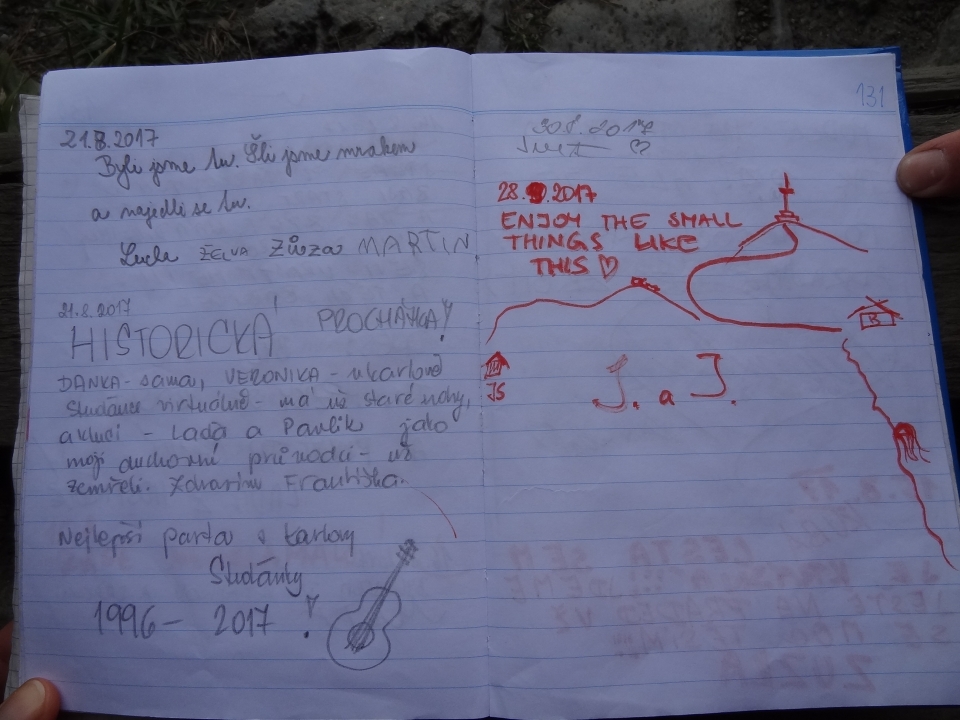 21.8.2017
Byli jsme tu. Šli jsme mrakem
a najedli se tu.
Lucle ŽELVA Zůza MARTIN
21.8.2017
HISTORICKÁ PROCHÁZKA!
DANKA - sama, VERONIKA - u karlově
studánce virtuálně - má už staré nohy,
a kluci - Laďa a Pavlík jako
moji duchovní průvodci - už
zemřeli. Zdravím Františka.
Nejlepší parta z Karlovy
Studánky
1996 - 2017 !
131
30.8.2017
28. 2017
ENJOY THE SMALL
THINGS LIKE
THIS ♡
B
JS
J. a J.